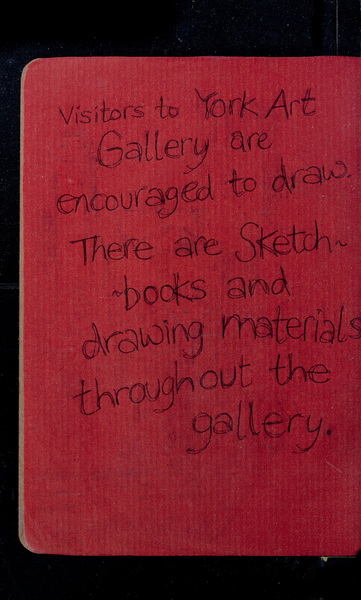 Visitors to York Art
Gallery are
encouraged to draw.
There are Sketch~
~books and
drawing materials
throughout the
gallery.